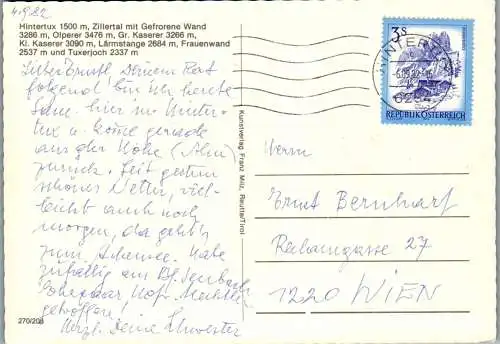 4.9.82
Hintertux 1500 m, Zillertal mit Gefrorene Wand
3286 m, Olperer 3476 m, Gr. Kaserer 3266 m,
Kl. Kaserer 3090 m, Lärmstange 2684 m, Frauenwand
2537 m und Tuxerjoch 2337 m
Lieber Ernstl, Deinem Rat
folgend bin ich heute
hier in Hinter-
tux u. komme gerade
aus der Höhe (Alm)
zurück. Seit gestern
schönes Wetter, viel-
leicht auch noch
morgen, da geht's
zum Achensee. Habe
zufällig am Bf. Jenbach
Ehepaar Hofr.
getroffen!
Herzl. Deine Schwester
270/208
Kunstverlag Franz Milz, Reutte/Tirol
HINTERTUX
6.09.82
3 S
REPUBLIK ÖSTERREICH
Herrn
Ernst Bernhart
27
1220 WIEN